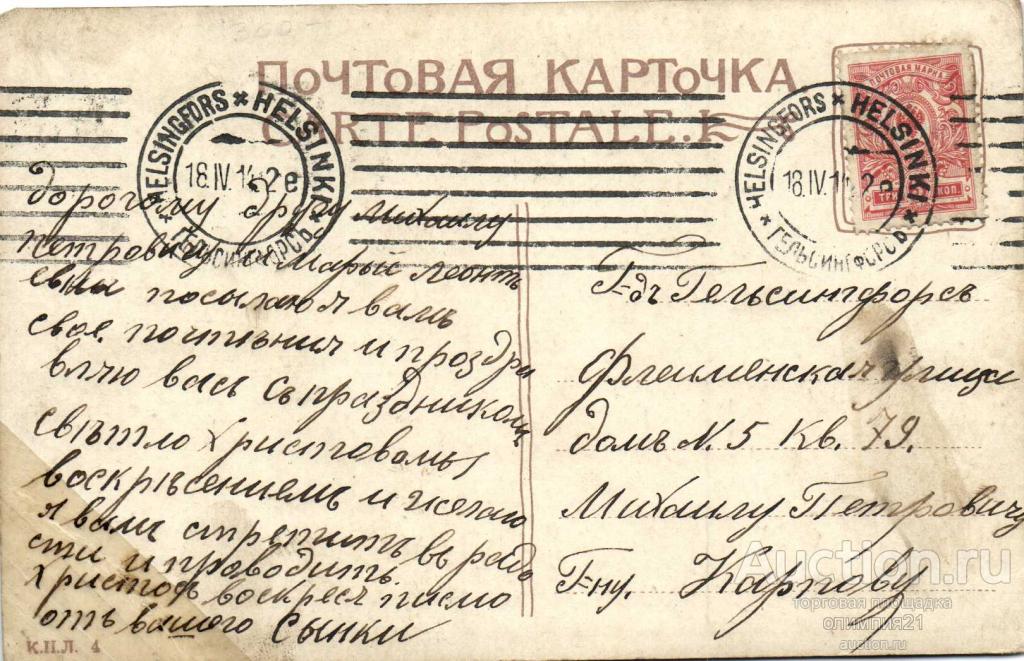 ПОЧТОВАЯ КАРТОЧКА
CARTE POSTALE.
HELSINGFORS * HELSINKI * ГЕЛЬСИНГФОРСЪ *
18.IV.14. 2 e
HELSINGFORS * HELSINKI * ГЕЛЬСИНГФОРСЪ *
18.IV.14. 2 e
ПОЧТОВАЯ МАРКА
ТРИ КОП.
дорогому другу Михаилу
петровичу и Марьѣ леонть
евны посылаю я вамъ
свое почтѣния и проздра
вляю васъ съ праздникомъ
свѣтло христовамъ
воскрѣсениемъ и желаю
я вамъ стрѣтить въ радо
сти и проводить.
христосъ воскресъ писмо
отъ вашого Сынки
Г-дъ Гельсингфорсъ
Флеминская улица
домъ N. 5 Кв. 79.
Михаилу Петровичу
Г-ну. Карпову
К.П.Л. 4
Auction.ru
торговая площадка
олимпия21
auction.ru